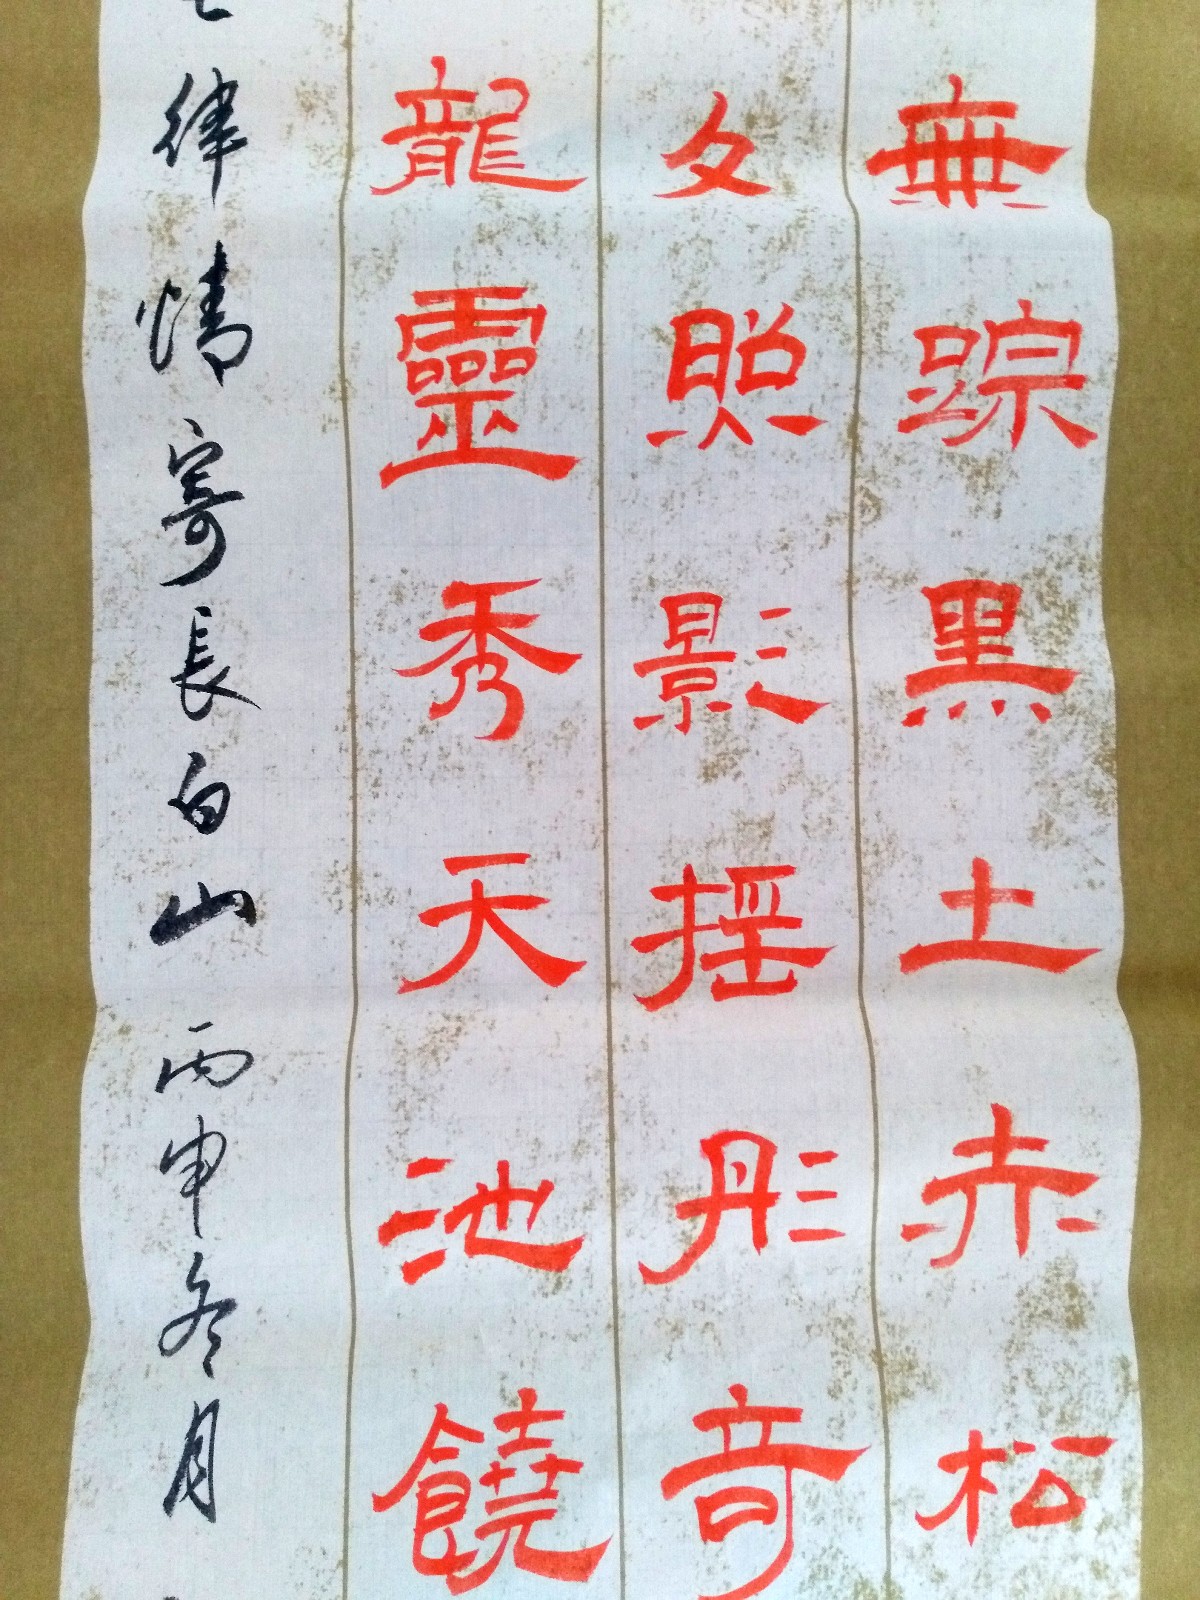 無踪黑土赤松
夕照影摇彤奇
龍靈秀天池饒
七律情寄長白山 丙申冬月